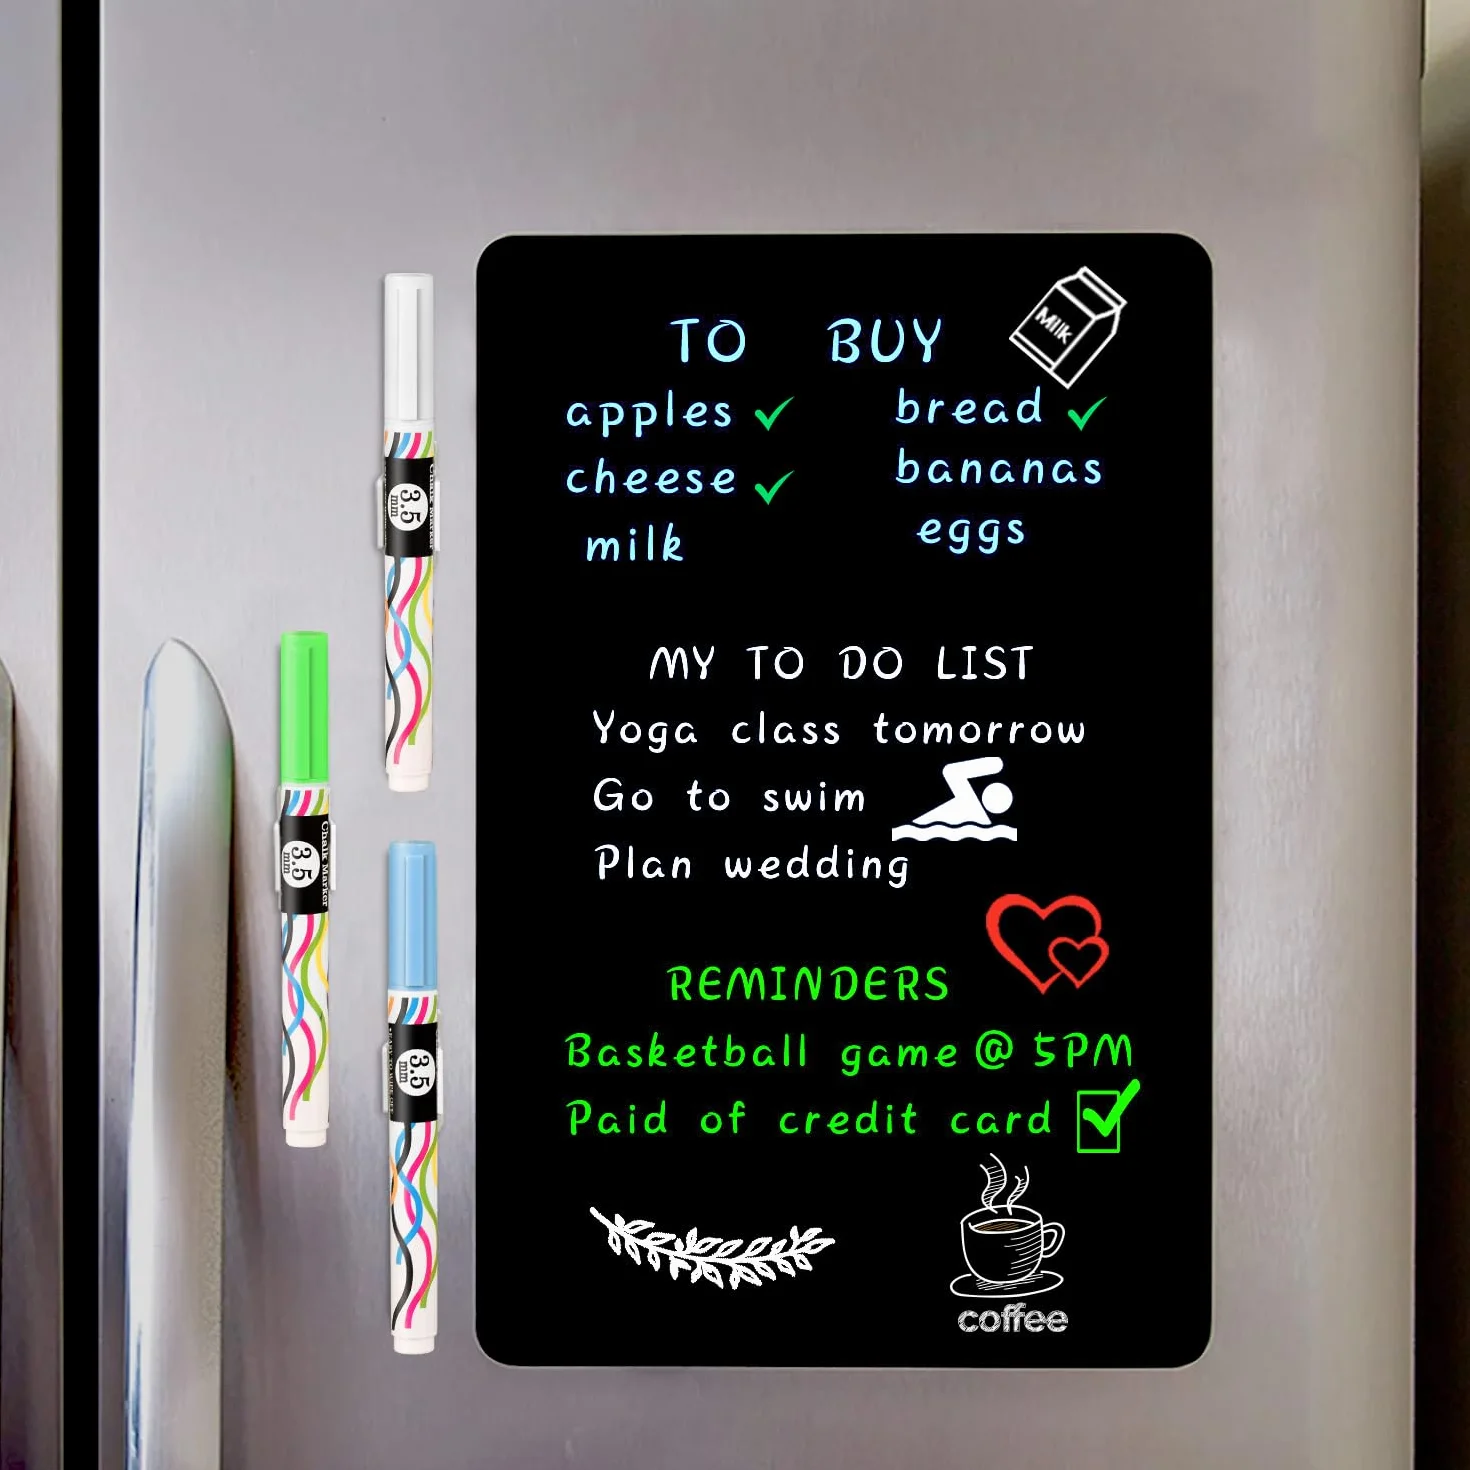 Milk
TO BUY
apples ✓ bread ✓
cheese ✓ bananas
milk eggs
MY TO DO LIST
Yoga class tomorrow
Go to swim
Plan wedding
REMINDERS
Basketball game @ 5PM
Paid of credit card
coffee
3.5
mm
Chalk Marker
3.5
mm
Chalk Marker
3.5
mm